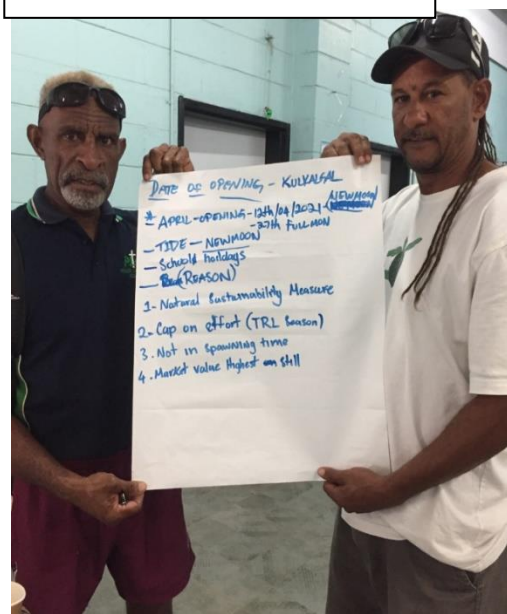 DATE OF OPENING - KULKALGAL
* APRIL-OPENING-12th/04/2021-NEWMOON
-27th FULLMON
- TIDE - NEWMOON
- Schoold holidays
- (REASON)
1- Natural Sustainability Measure
2- Cap on effort (TRL Season)
3. Not in spawning time
4. Market value Highest still